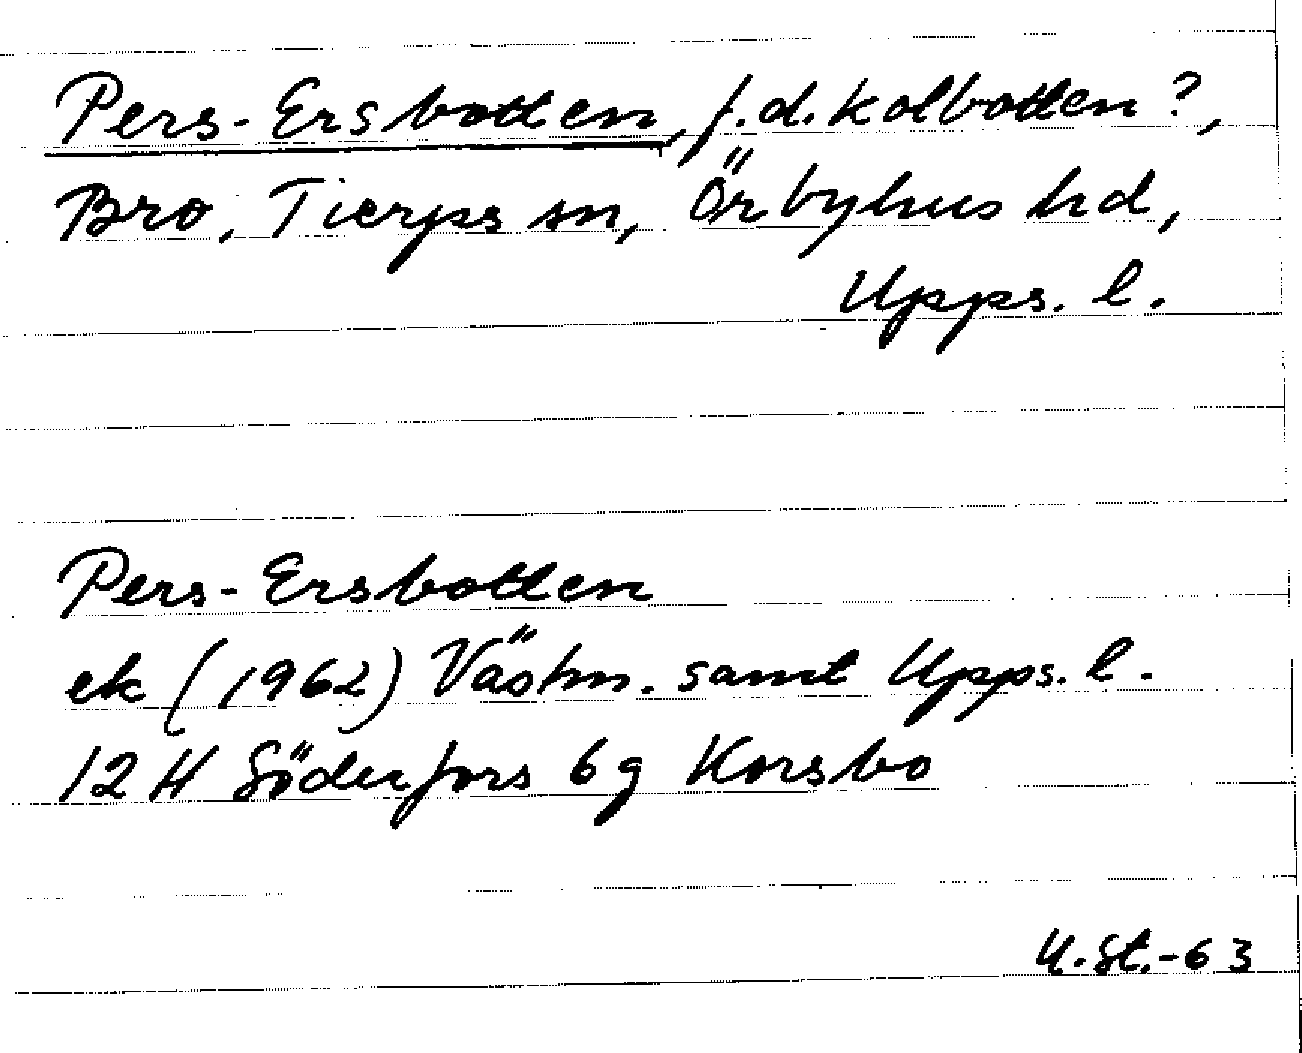 Pers-Ersbotten, f.d. kolbotten?,
Bro, Tierps sn, Örbyhus hd,
Upps. l.
Pers-Ersbotten
ek (1962) Västm. samt Upps. l.
12 H Söderfors 6 g Korsbo
U. St. -63